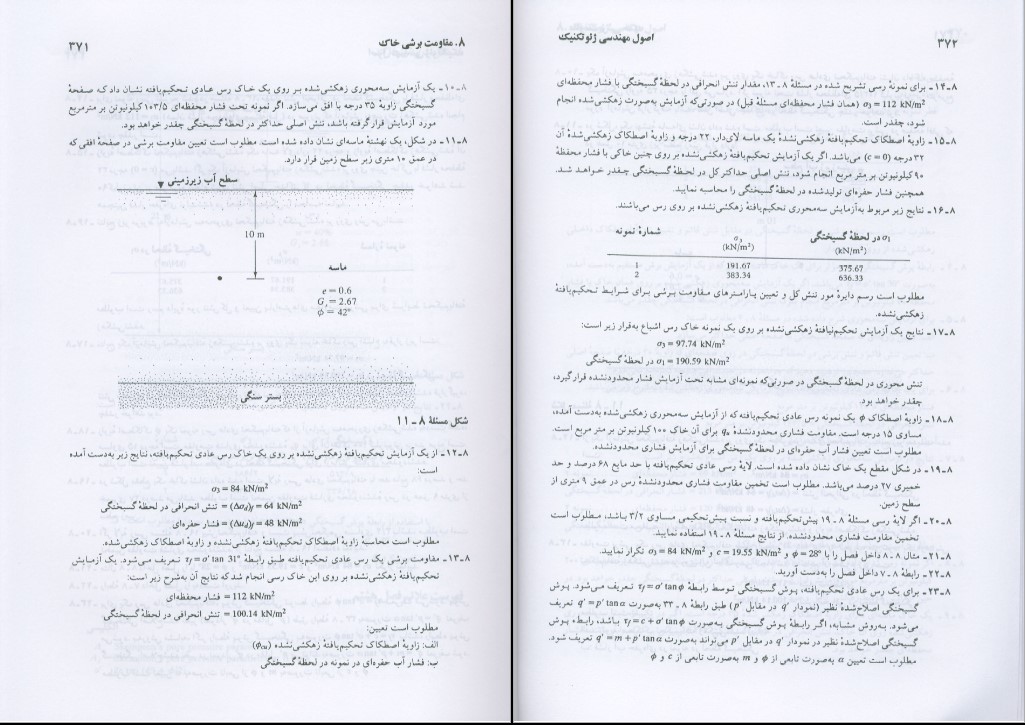 ۸. مقاومت برشی خاک
۳۷۱
۸ـ۱۰ـ یک آزمایش سه‌محوری زهکشی‌شده بر روی یک خاک رس عادی تحکیم‌یافته نشان داد که صفحهٔ
گسیختگی زاویهٔ ۳۵ درجه با افق می‌سازد. اگر نمونه تحت فشار محفظه‌ای ۱۰۳/۵ کیلونیوتن بر مترمربع
مورد آزمایش قرار گرفته باشد، تنش اصلی حداکثر در لحظهٔ گسیختگی چقدر خواهد بود.
۸ـ۱۱ـ در شکل، یک نهشتهٔ ماسه‌ای نشان داده شده است. مطلوب است تعیین مقاومت برشی در صفحهٔ افقی که
در عمق ۱۰ متری زیر سطح زمین قرار دارد.
سطح آب زیرزمینی
10 m
ماسه
e = 0.6
Gs = 2.67
ϕ = 42°
بستر سنگی
شکل مسئلهٔ ۸ ـ ۱۱
۸ـ۱۲ـ از یک آزمایش تحکیم‌یافتهٔ زهکشی‌نشده بر روی یک خاک رس عادی تحکیم‌یافته، نتایج زیر به‌دست آمده
است:
σ3 = 84 kN/m²
تنش انحرافی در لحظهٔ گسیختگی = (Δσd)f = 64 kN/m²
فشار حفره‌ای = (Δud)f = 48 kN/m²
مطلوب است محاسبهٔ زاویهٔ اصطکاک تحکیم‌یافتهٔ زهکشی‌نشده و زاویهٔ اصطکاک زهکشی‌شده.
۸ـ۱۳ـ مقاومت برشی یک رس عادی تحکیم‌یافته طبق رابطهٔ τf = σ' tan 31° تعریف می‌شود. یک آزمایش
تحکیم‌یافتهٔ زهکشی‌نشده بر روی این خاک رسی انجام شد که نتایج آن به‌شرح زیر است:
فشار محفظه‌ای = 112 kN/m²
تنش انحرافی در لحظهٔ گسیختگی = 100.14 kN/m²
مطلوب است تعیین:
الف: زاویهٔ اصطکاک تحکیم‌یافتهٔ زهکشی‌نشده (ϕcu)
ب: فشار آب حفره‌ای در نمونه در لحظهٔ گسیختگی
اصول مهندسی ژئوتکنیک
۳۷۲
۸ـ۱۴ـ برای نمونهٔ رسی تشریح شده در مسئلهٔ ۸ ـ ۱۳، مقدار تنش انحرافی در لحظهٔ گسیختگی با فشار محفظه‌ای
σ3 = 112 kN/m² (همان فشار محفظه‌ای مسئلهٔ قبل) در صورتی‌که آزمایش به‌صورت زهکشی‌شده انجام
شود، چقدر است.
۸ـ۱۵ـ زاویهٔ اصطکاک تحکیم‌یافتهٔ زهکشی‌نشدهٔ یک ماسه لای‌دار، ۲۲ درجه و زاویهٔ اصطکاک زهکشی‌شدهٔ آن
۳۲ درجه (c = 0) می‌باشد. اگر یک آزمایش تحکیم‌یافتهٔ زهکشی‌نشده بر روی چنین خاکی با فشار محفظهٔ
۹۰ کیلونیوتن بر متر مربع انجام شود، تنش اصلی حداکثر کل در لحظهٔ گسیختگی چقدر خواهد شد.
همچنین فشار حفره‌ای تولیدشده در لحظهٔ گسیختگی را محاسبه نمایید.
۸ـ۱۶ـ نتایج زیر مربوط به‌آزمایش سه‌محوری تحکیم‌یافتهٔ زهکشی‌نشده بر روی رس می‌باشند.
شمارهٔ نمونه σ3 (kN/m²) σ1 در لحظهٔ گسیختگی (kN/m²)
1 191.67 375.67
2 383.34 636.33
مطلوب است رسم دایرهٔ مور تنش کل و تعیین پارامترهای مقاومت برشی برای شرایط تحکیم‌یافتهٔ
زهکشی‌نشده.
۸ـ۱۷ـ نتایج یک آزمایش تحکیم‌نیافتهٔ زهکشی‌نشده بر روی یک نمونه خاک رس اشباع به‌قرار زیر است:
σ3 = 97.74 kN/m²
σ1 = 190.59 kN/m² در لحظهٔ گسیختگی
تنش محوری در لحظهٔ گسیختگی در صورتی‌که نمونه‌ای مشابه تحت آزمایش فشار محدودنشده قرار گیرد،
چقدر خواهد بود.
۸ـ۱۸ـ زاویهٔ اصطکاک ϕ یک نمونه رس عادی تحکیم‌یافته که از آزمایش سه‌محوری زهکشی‌شده به‌دست آمده،
مساوی ۱۵ درجه است. مقاومت فشاری محدودنشدهٔ qu برای آن خاک ۱۰۰ کیلونیوتن بر متر مربع است.
مطلوب است تعیین فشار آب حفره‌ای در لحظهٔ گسیختگی برای آزمایش فشاری محدودنشده.
۸ـ۱۹ـ در شکل مقطع یک خاک نشان داده شده است. لایهٔ رسی عادی تحکیم‌یافته با حد مایع ۶۸ درصد و حد
خمیری ۲۷ درصد می‌باشد. مطلوب است تخمین مقاومت فشاری محدودنشدهٔ رس در عمق ۹ متری از
سطح زمین.
۸ـ۲۰ـ اگر لایهٔ رسی مسئلهٔ ۸ ـ ۱۹ پیش‌تحکیم‌یافته و نسبت پیش‌تحکیمی مساوی ۳/۲ باشد، مطلوب است
تخمین مقاومت فشاری محدودنشده. از نتایج مسئلهٔ ۸ ـ ۱۹ استفاده نمایید.
۸ـ۲۱ـ مثال ۸ ـ ۸ داخل فصل را با ϕ = 28° و c = 19.55 kN/m² و σ3 = 84 kN/m² تکرار نمایید.
۸ـ۲۲ـ رابطهٔ ۸ ـ ۷ داخل فصل را به‌دست آورید.
۸ـ۲۳ـ برای یک رس عادی تحکیم‌یافته، پوش گسیختگی توسط رابطهٔ τf = σ' tan ϕ تعریف می‌شود. پوش
گسیختگی اصلاح‌شدهٔ نظیر (نمودار q' در مقابل p') طبق رابطهٔ ۸ ـ ۳۳ به‌صورت q' = p' tan α تعریف
می‌شود. به‌روش مشابه، اگر رابطهٔ پوش گسیختگی به‌صورت τf = c + σ' tan ϕ باشد، رابطهٔ پوش
گسیختگی اصلاح‌شدهٔ نظیر در نمودار q' در مقابل p' می‌تواند به‌صورت q' = m + p' tan α تعریف شود.
مطلوب است تعیین α به‌صورت تابعی از ϕ و m به‌صورت تابعی از c و ϕ